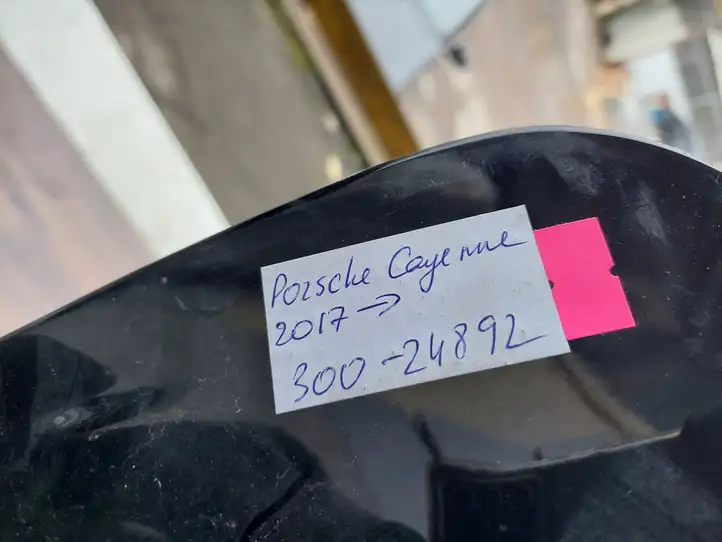 Porsche Cayenne
2017 →
300-24892